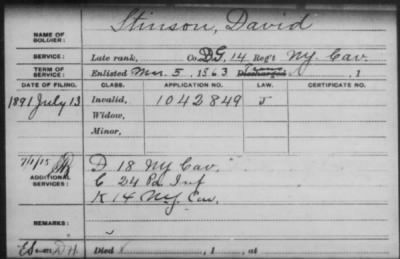 NAME OF SOLDIER: Stinson, David
SERVICE: Late rank, Co. D.G. 14 Reg't N.Y. Cav.
TERM OF SERVICE: Enlisted Mar. 5, 1863 Discharged , 1
DATE OF FILING. CLASS. APPLICATION NO. LAW. CERTIFICATE NO.
1891 July 13 Invalid, 1042849 J
Widow,
Minor,
7/1/15 D 18 N.Y. Cav.
ADDITIONAL SERVICES: C 24 Pa Inf
K 14 N.Y. Cav.
REMARKS:
Died , 1 , at